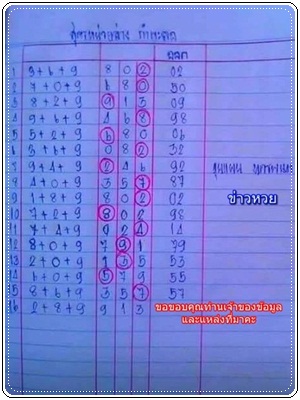 ผลก
1 3+6+9 8 0 2 02
2 7+0+9 6 8 0 50
3 8+2+9 9 1 3 09
4 9+6+9 4 6 8 98
5 5+2+9 6 8 0 06
6 3+6+9 0 8 2 32
7 9+4+9 2 4 6 92
8 4+0+9 3 5 7 87
9 1+8+9 8 0 2 02
10 7+2+9 8 0 2 98
11 7+4+9 0 2 4 14
12 8+0+9 7 9 1 79
13 2+0+9 1 3 5 53
14 6+0+9 5 7 9 55
15 8+6+9 3 5 7 57
16 2+8+9 9 1 3
ข่าวหวย
ขอขอบคุณท่านเจ้าของข้อมูล
และแหล่งที่มาคะ